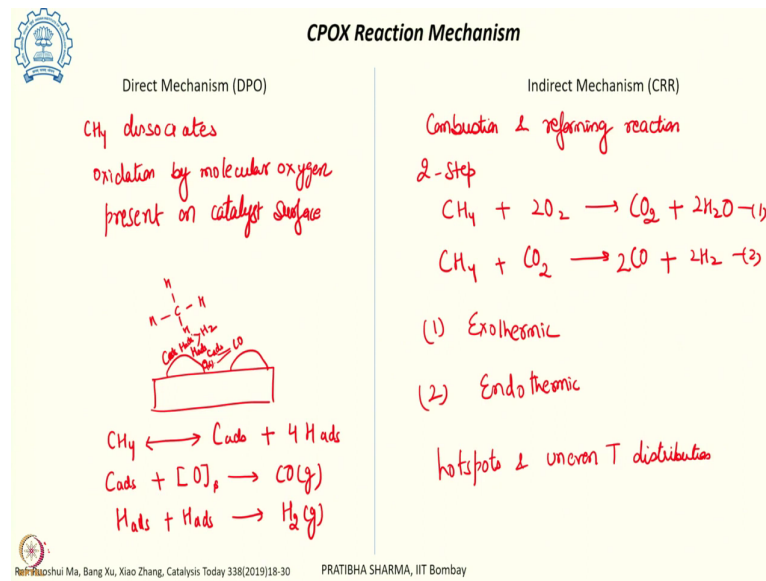 CPOX Reaction Mechanism
Direct Mechanism (DPO)
CH4 dissociates
oxidation by molecular oxygen
present on catalyst surface
H
H - C - H
H
H2
Cads Hads Hads Cads CO
CH4 ⟷ Cads + 4 Hads
Cads + [O]s → CO(g)
Hads + Hads → H2(g)
Indirect Mechanism (CRR)
Combustion & reforming reaction
2-Step
CH4 + 2O2 → CO2 + 2H2O -(1)
CH4 + CO2 → 2CO + 2H2 -(2)
(1) Exothermic
(2) Endothermic
hotspots & uneven T distribution
Ref: Ruoshui Ma, Bang Xu, Xiao Zhang, Catalysis Today 338(2019)18-30
PRATIBHA SHARMA, IIT Bombay